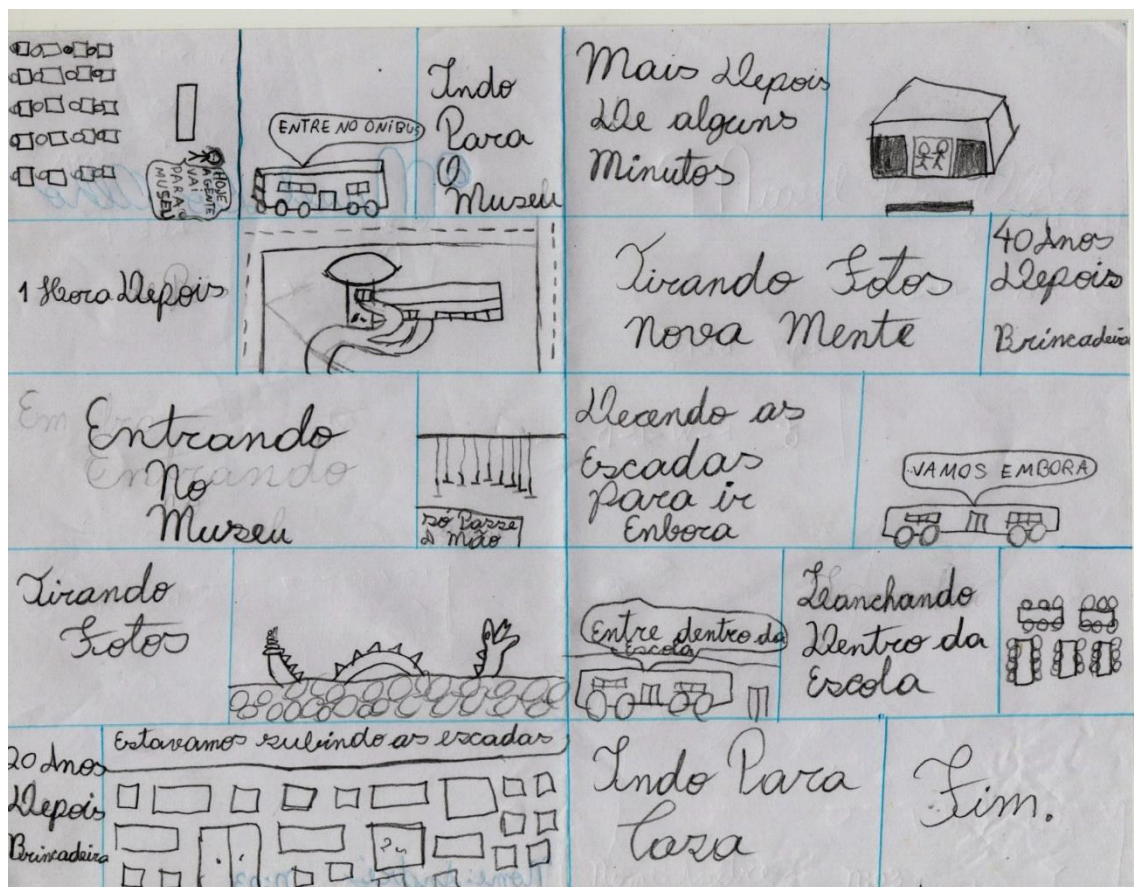 HOJE
AGENTE
VAI
PARA O
MUSEU
ENTRE NO ONIBUS
Indo
Para
O
Museu
1 Hora Depois
Entrando
No
Museu
só Passe
a mão
Tirando
Fotos
20 Anos
Depois
Brincadeira
Estavamos subindo as escadas
Mais Depois
De alguns
Minutos
Tirando Fotos
Nova Mente
40 Anos
Depois
Brincadeira
Decendo as
Escadas
para ir
Enbora
VAMOS EMBORA
Entre dentro da
Escola
Lanchando
Dentro da
Escola
Indo Para
Caza
Fim.